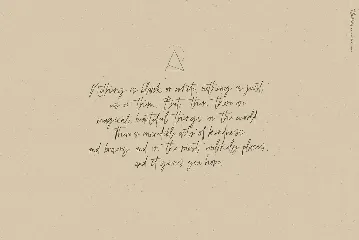 A
Nothing is black or white, nothing is just
us or them. But then there are
magical, beautiful things in the world.
There's incredible acts of kindness
and bravery, and in the most unlikely places,
and it gives you hope.